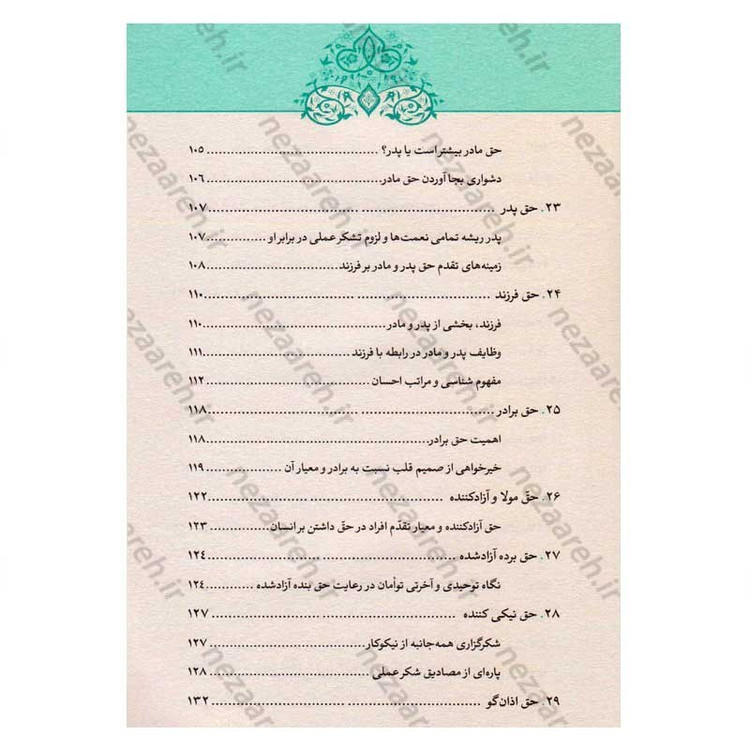 حق مادر بیشتر است یا پدر؟ ........ ۱۰۵
دشواری بجا آوردن حق مادر ........ ۱۰۶
۲۳. حق پدر ........ ۱۰۷
پدر ریشه تمامی نعمت‌ها و لزوم تشکر عملی در برابر او ........ ۱۰۷
زمینه‌های تقدم حق پدر و مادر بر فرزند ........ ۱۰۸
۲۴. حق فرزند ........ ۱۱۰
فرزند، بخشی از پدر و مادر ........ ۱۱۰
وظایف پدر و مادر در رابطه با فرزند ........ ۱۱۱
مفهوم شناسی و مراتب احسان ........ ۱۱۲
۲۵. حق برادر ........ ۱۱۸
اهمیت حق برادر ........ ۱۱۸
خیرخواهی از صمیم قلب نسبت به برادر و معیار آن ........ ۱۱۹
۲۶. حقّ مولا و آزادکننده ........ ۱۲۲
حق آزادکننده و معیار تقدّم افراد در حقّ داشتن بر انسان ........ ۱۲۳
۲۷. حق برده آزادشده ........ ۱۲۴
نگاه توحیدی و آخرتی توأمان در رعایت حق بنده آزادشده ........ ۱۲۴
۲۸. حق نیکی کننده ........ ۱۲۷
شکرگزاری همه‌جانبه از نیکوکار ........ ۱۲۷
پاره‌ای از مصادیق شکر عملی ........ ۱۲۸
۲۹. حق اذان‌گو ........ ۱۳۲
nezaareh.ir